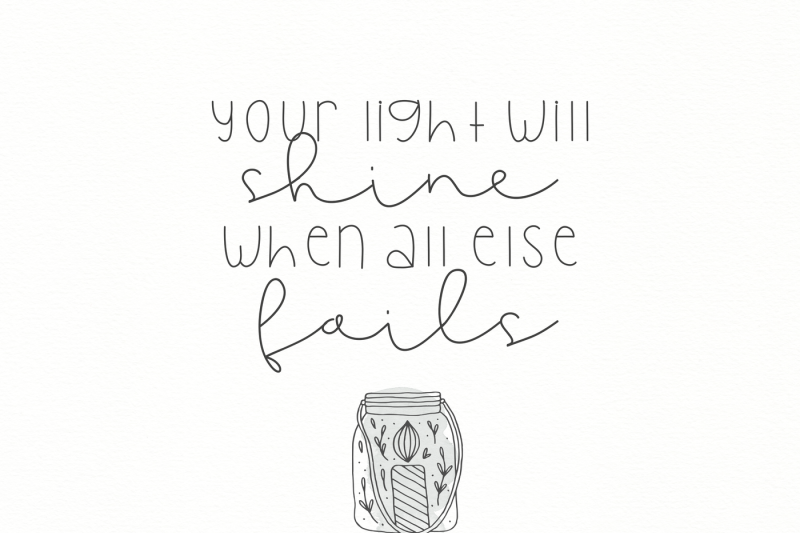 your light will
shine
when all else
fails